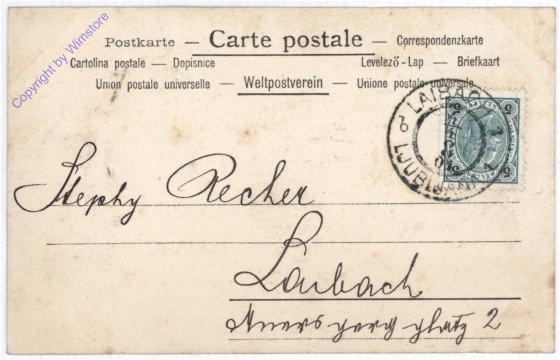 Copyright by Wimstore
Postkarte — Carte postale — Correspondenzkarte
Cartolina postale — Dopisnice Levelező-Lap — Briefkaart
Union postale universelle — Weltpostverein — Unione postale universale
LAIBACH
LJUBLJANA
5 5
5 5
Stephy Recher
Laibach
Auerspergplatz 2